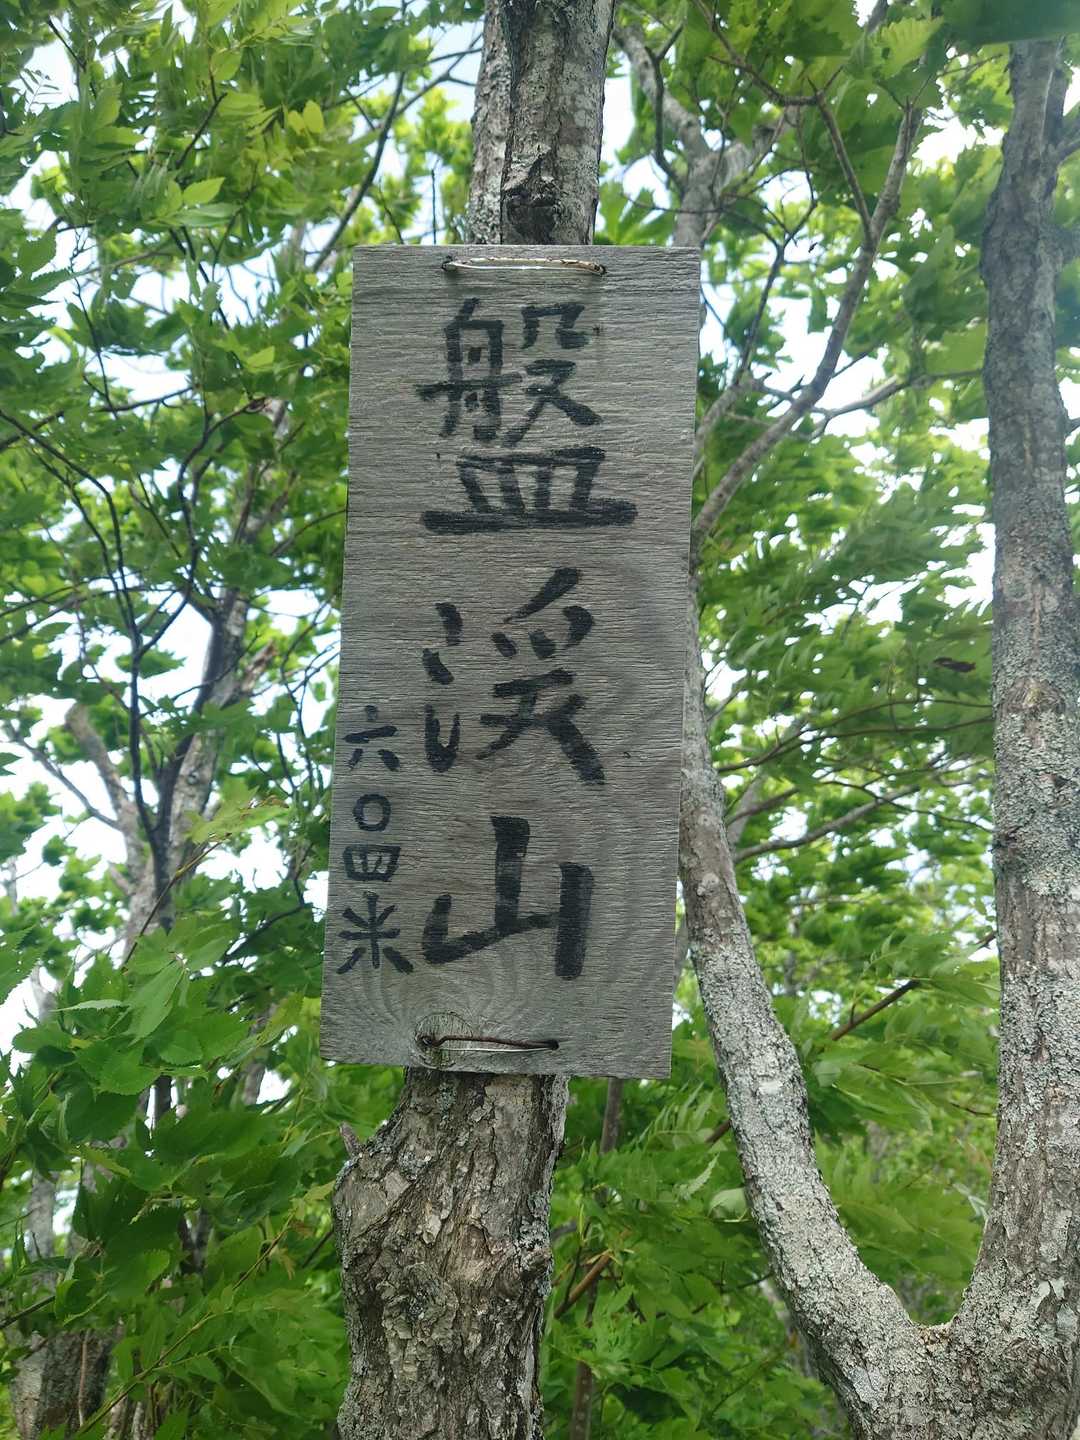 盤渓山
六〇四米